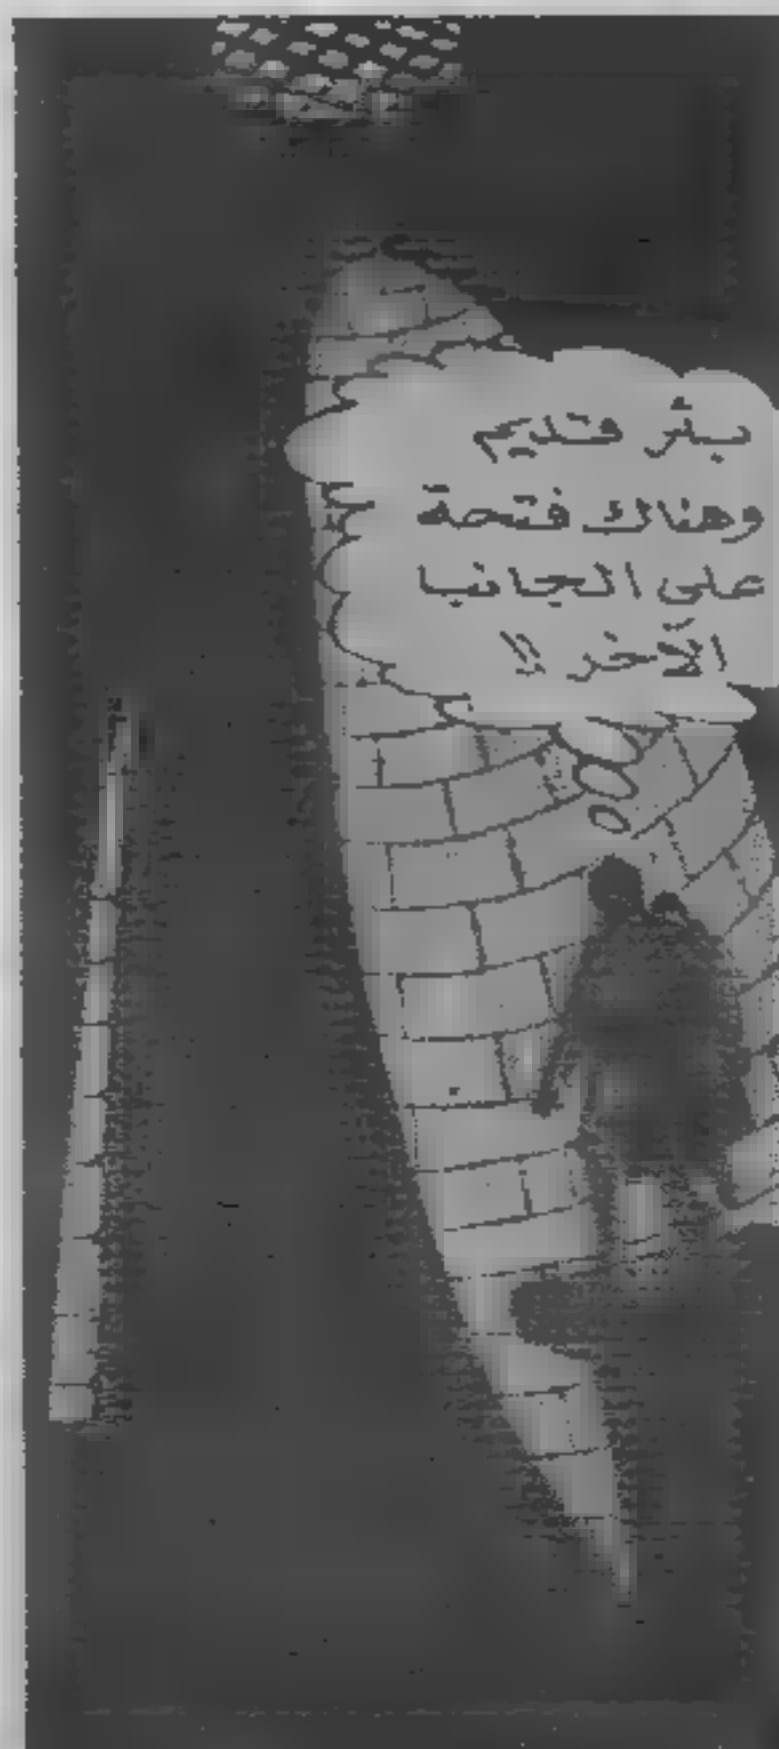 بئر قديم
وهناك فتحة
على الجانب
الآخر !!